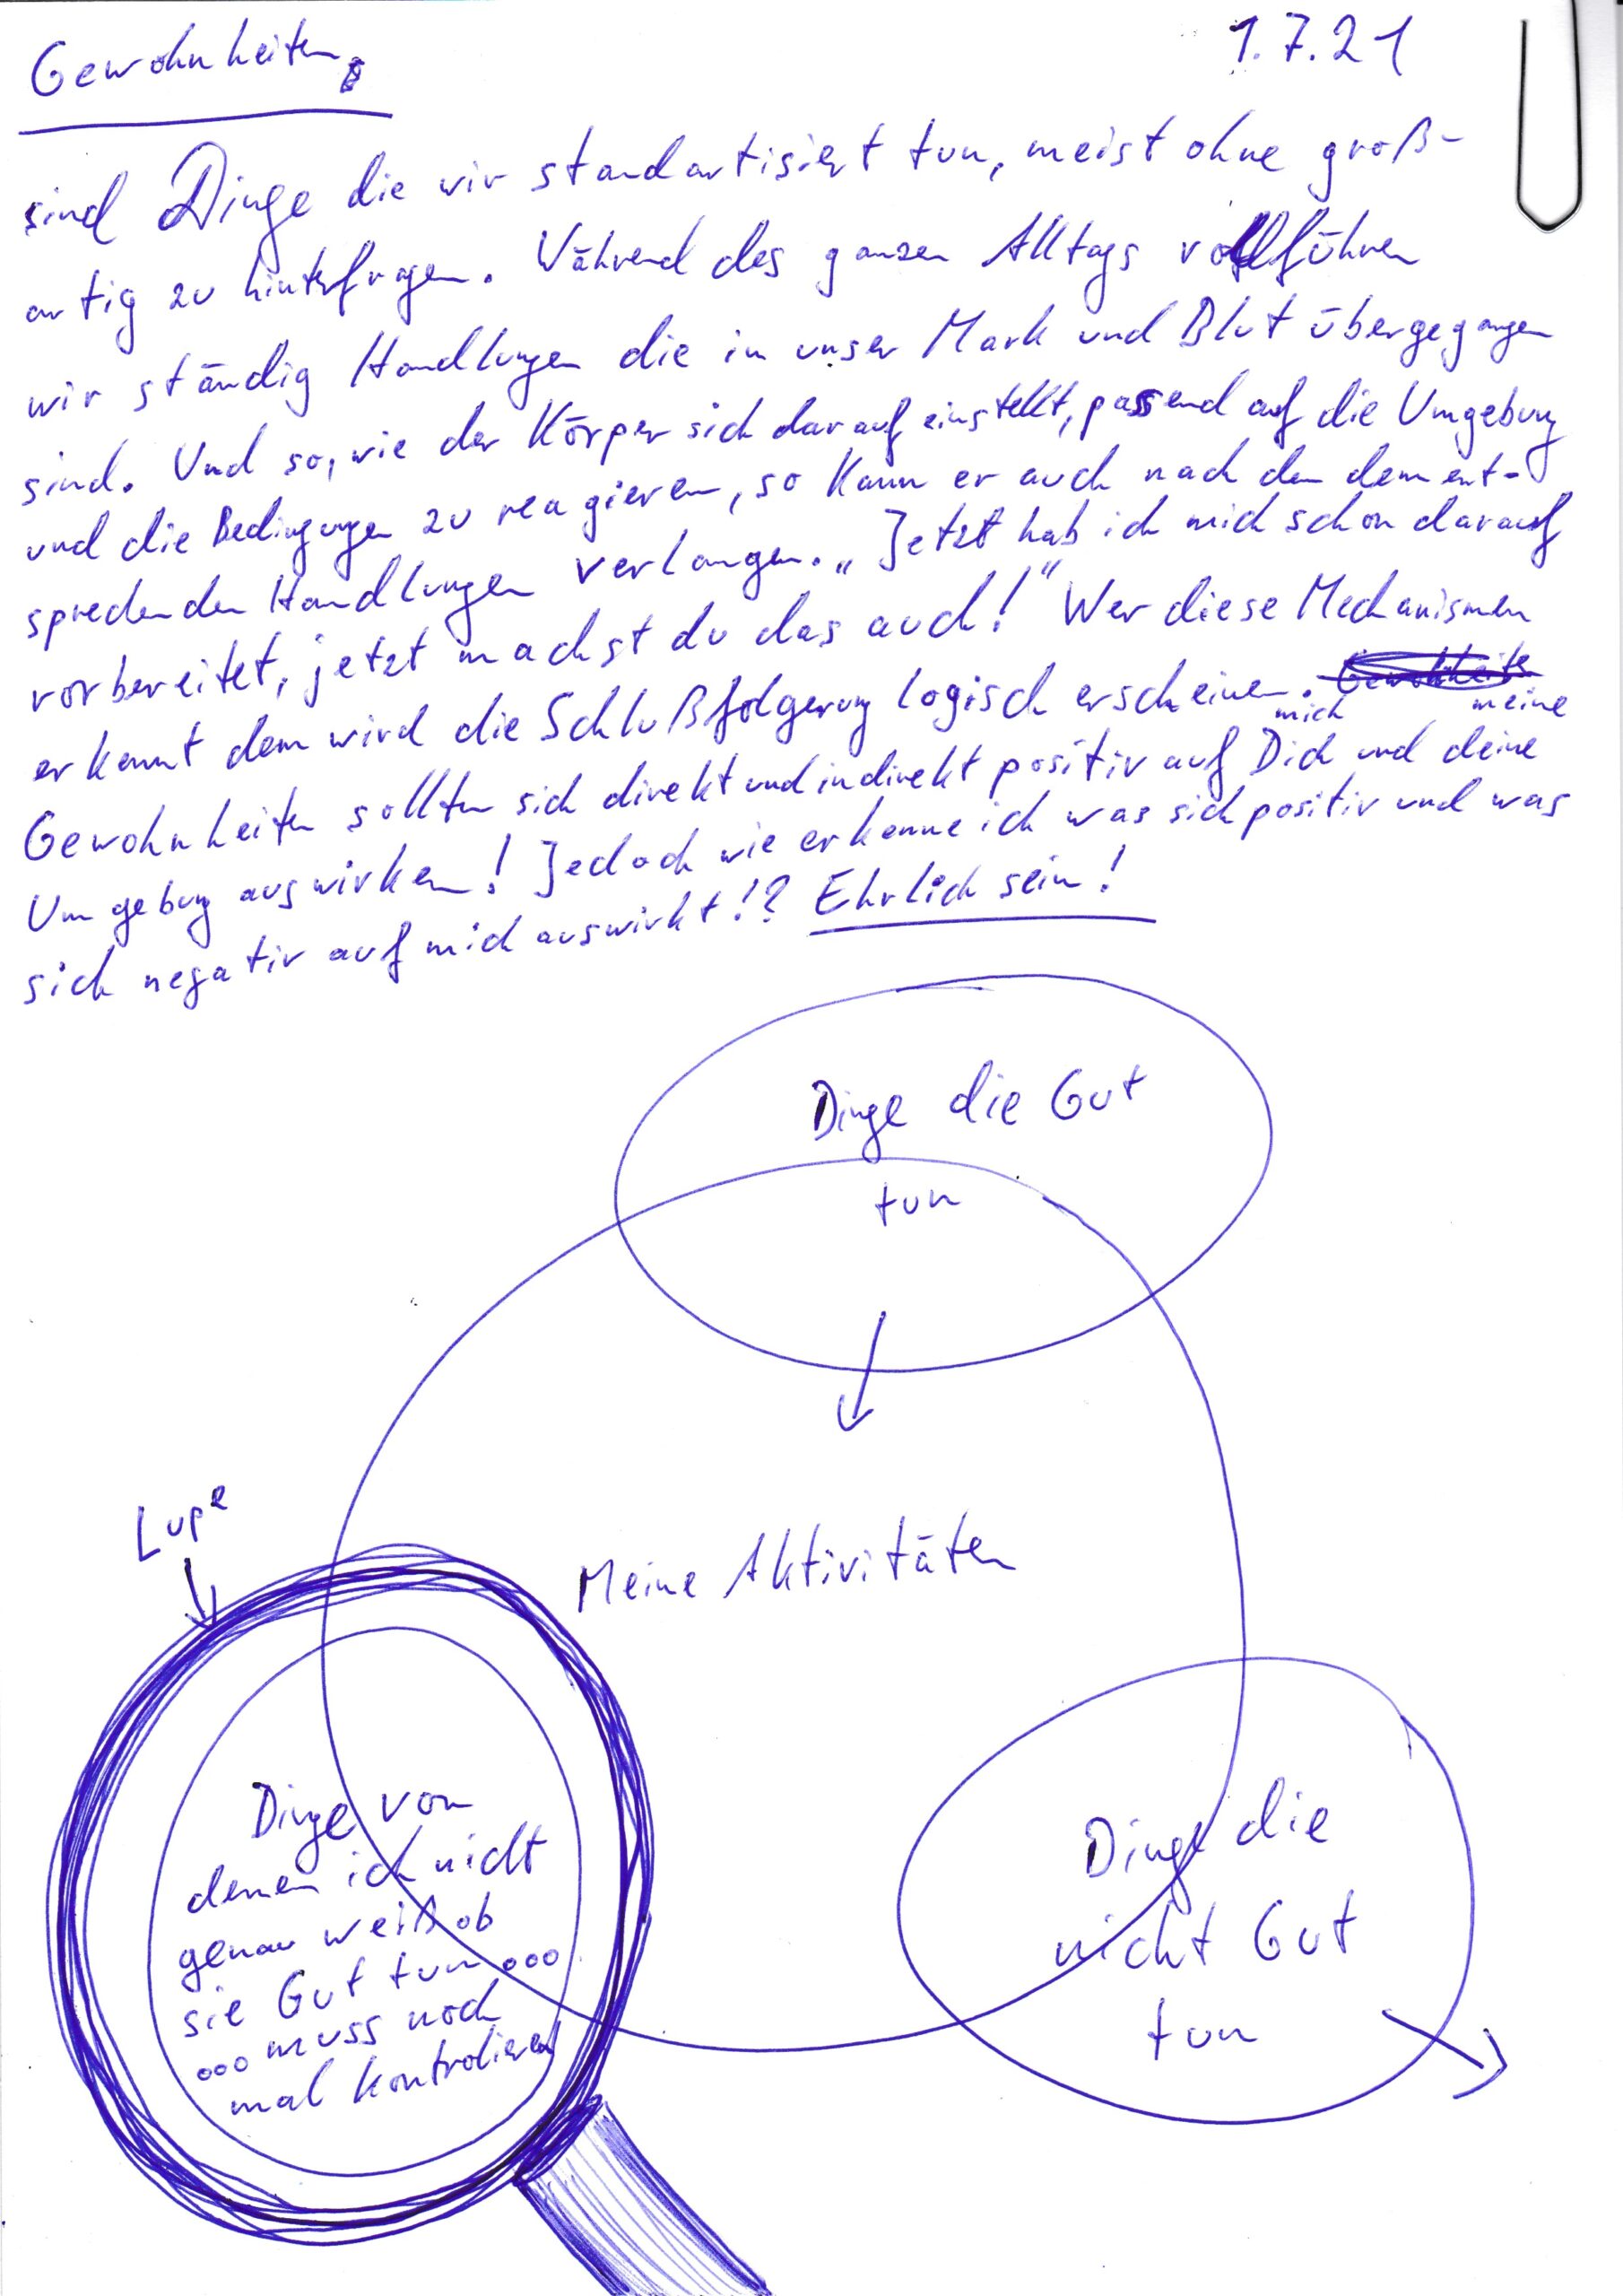 Gewohnheiten
1.7.21
sind Dinge die wir standartisiert tun, meist ohne groß-
artig zu hinterfragen. Während des ganzen Alltags vollführen
wir ständig Handlungen die in unser Mark und Blut übergegangen
sind. Und so, wie der Körper sich darauf einstellt, passend auf die Umgebung
und die Bedingungen zu reagieren, so kann er auch nach den dement-
sprechenden Handlungen verlangen. „Jetzt hab ich mich schon darauf
vorbereitet, jetzt machst du das auch!" Wer diese Mechanismen
erkennt dem wird die Schlußfolgerung logisch erscheinen. Gewohnheiten
mich meine
Gewohnheiten sollten sich direkt und indirekt positiv auf Dich und deine
Umgebung auswirken! Jedoch wie erkenne ich was sich positiv und was
sich negativ auf mich auswirkt!? Ehrlich sein!
Dinge die Gut
tun
Lupe
Meine Aktivitäten
Dinge von
denen ich nicht
genau weiß ob
sie Gut tun...
...muss noch
mal kontrolieren
Dinge die
nicht Gut
tun